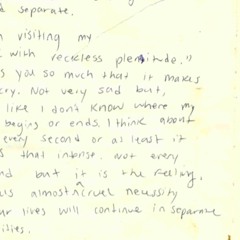 d separate.
n visiting my
with reckless plentitude."
s you so much that it makes
cry. Not very sad but,
like I don't know where my
begins or ends. I think about
every second or as least it
s that intense. Not every
nd but it is the feeling.
als almost cruel necessity
ur lives will continue in separate
ilities.